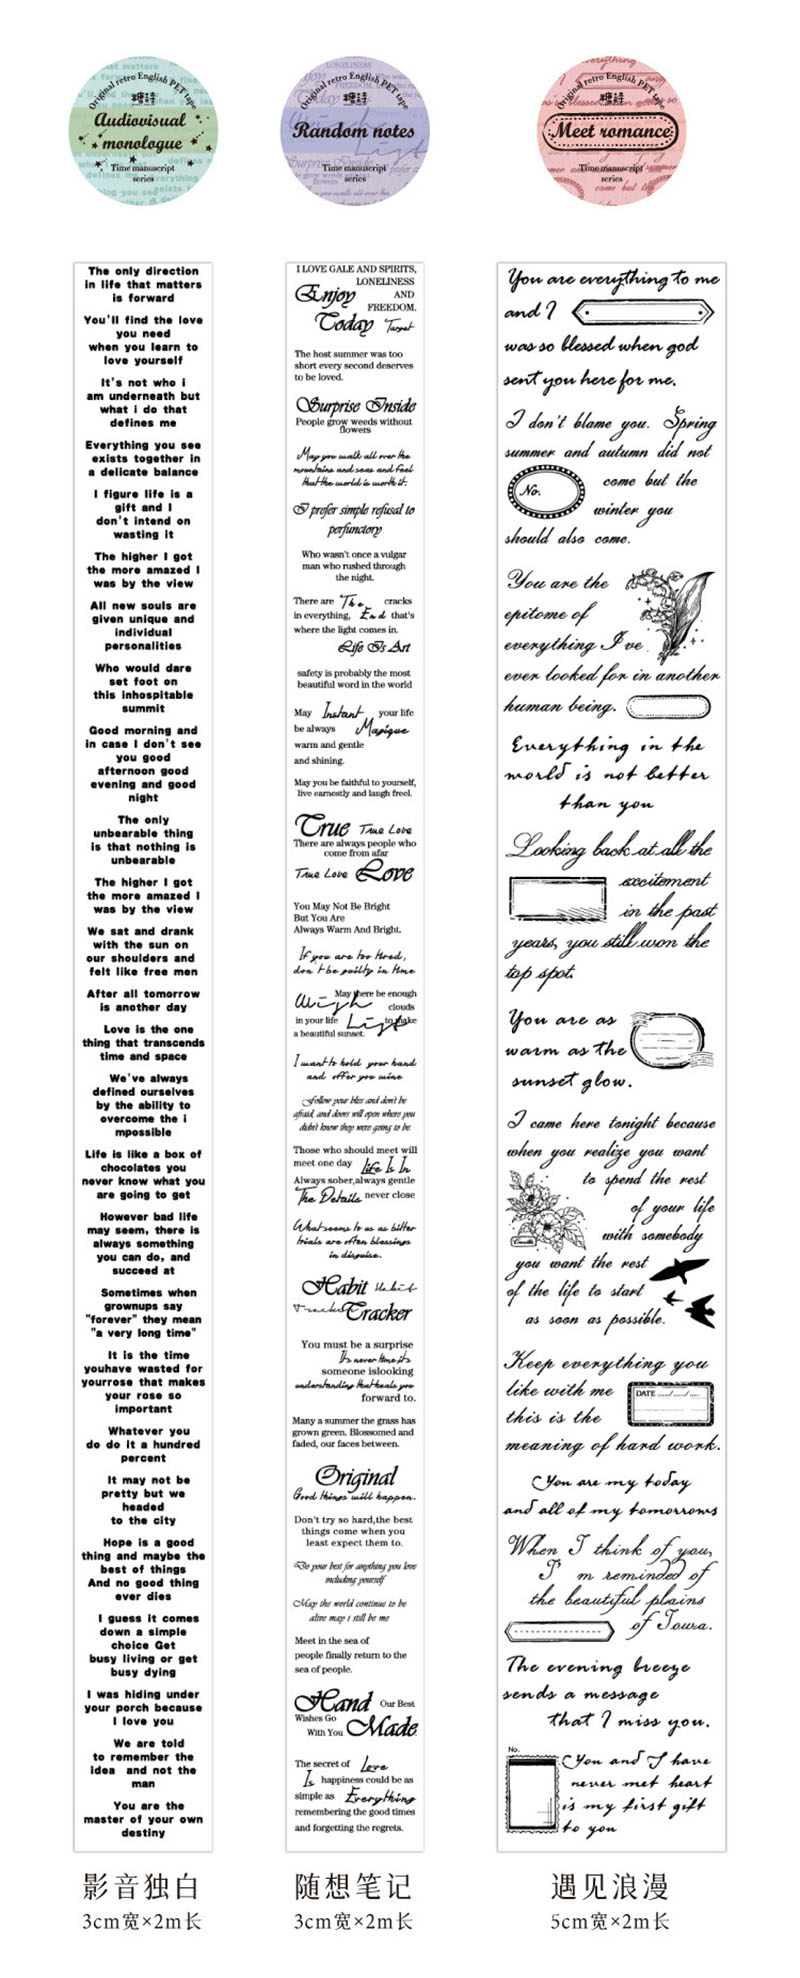 Original retro English PET tape
糖詩
Audiovisual
monologue
Time manuscript
series
Original retro English PET tape
糖詩
Random notes
Time manuscript
series
Original retro English PET tape
糖詩
Meet romance
Time manuscript
series
The only direction
in life that matters
is forward
You'll find the love
you need
when you learn to
love yourself
It's not who i
am underneath but
what i do that
defines me
Everything you see
exists together in
a delicate balance
I figure life is a
gift and I
don't intend on
wasting it
The higher I got
the more amazed I
was by the view
All new souls are
given unique and
individual
personalities
Who would dare
set foot on
this inhospitable
summit
Good morning and
in case I don't see
you good
afternoon good
evening and good
night
The only
unbearable thing
is that nothing is
unbearable
The higher I got
the more amazed I
was by the view
We sat and drank
with the sun on
our shoulders and
felt like free men
After all tomorrow
is another day
Love is the one
thing that transcends
time and space
We've always
defined ourselves
by the ability to
overcome the i
mpossible
Life is like a box of
chocolates you
never know what you
are going to get
However bad life
may seem, there is
always something
you can do, and
succeed at
Sometimes when
grownups say
"forever" they mean
"a very long time"
It is the time
youhave wasted for
yourrose that makes
your rose so
important
Whatever you
do do it a hundred
percent
It may not be
pretty but we
headed
to the city
Hope is a good
thing and maybe the
best of things
And no good thing
ever dies
I guess it comes
down a simple
choice Get
busy living or get
busy dying
I was hiding under
your porch because
I love you
We are told
to remember the
idea and not the
man
You are the
master of your own
destiny
I LOVE GALE AND SPIRITS,
LONELINESS
Enjoy AND
FREEDOM.
Today Target
The host summer was too
short every second deserves
to be loved.
Surprise Inside
People grow weeds without
flowers
May you walk all over the
mountains and seas and feel
that the world is worth it.
I prefer simple refusal to
perfunctory
Who wasn't once a vulgar
man who rushed through
the night.
There are The cracks
in everything, End that's
where the light comes in.
Life Is Art
safety is probably the most
beautiful word in the world
May Instant your life
be always Magique
warm and gentle
and shining.
May you be faithful to yourself,
live earnestly and laugh freel.
True True Love
There are always people who
come from afar
True Love Love
You May Not Be Bright
But You Are
Always Warm And Bright.
If you are too tired,
don't be guilty in time
May there be enough
Wigh clouds
in your life List to make
a beautiful sunset.
I want to hold your hand
and offer you wine
Follow your bliss and don't be
afraid, and doors will open where you
didn't know they were going to be.
Those who should meet will
meet one day Life Is In
Always sober,always gentle
The Details never close
What seems to us as bitter
trials are often blessings
in disguise.
Habit Habit
Tracker Tracker
You must be a surprise
It's never time it's
someone islooking
understanding that heals you
forward to.
Many a summer the grass has
grown green. Blossomed and
faded, our faces between.
Original
Good things will happen.
Don't try so hard,the best
things come when you
least expect them to.
Do your best for anything you love
including yourself
May the world continue to be
alive may i still be me
Meet in the sea of
people finally return to the
sea of people.
Hand Our Best
Wishes Go
With You Made
The secret of Love
Is happiness could be as
simple as Everything
remembering the good times
and forgetting the regrets.
You are everything to me
and I
was so blessed when god
sent you here for me.
I don't blame you. Spring
summer and autumn did not
No. come but the
winter you
should also come.
You are the
epitome of
everything I've
ever looked for in another
human being.
Everything in the
world is not better
than you
Looking back at all the
excitement
in the past
years, you still won the
top spot.
You are as
warm as the
sunset glow.
I came here tonight because
when you realize you want
to spend the rest
of your life
with somebody
you want the rest
of the life to start
as soon as possible.
Keep everything you
like with me
DATE ..../..../....
this is the
meaning of hard work.
You are my today
and all of my tomorrows
When I think of you,
I'm reminded of
the beautiful plains
of Iowa.
The evening breeze
sends a message
that I miss you.
No.
You and I have
never met heart
is my first gift
to you
影音独白
3cm宽×2m长
随想笔记
3cm宽×2m长
遇见浪漫
5cm宽×2m长